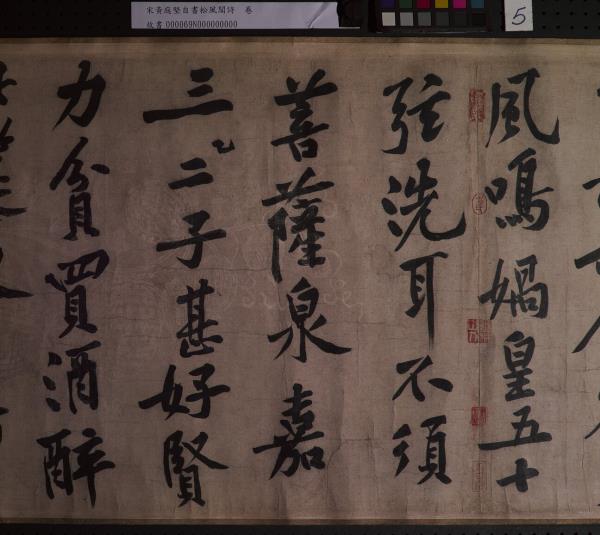 宋黃庭堅自書松風閣詩 卷
故書 000069N000000000
5
風鳴媧皇五十
弦洗耳不須
菩薩泉嘉
三二子甚好賢
力貧買酒醉